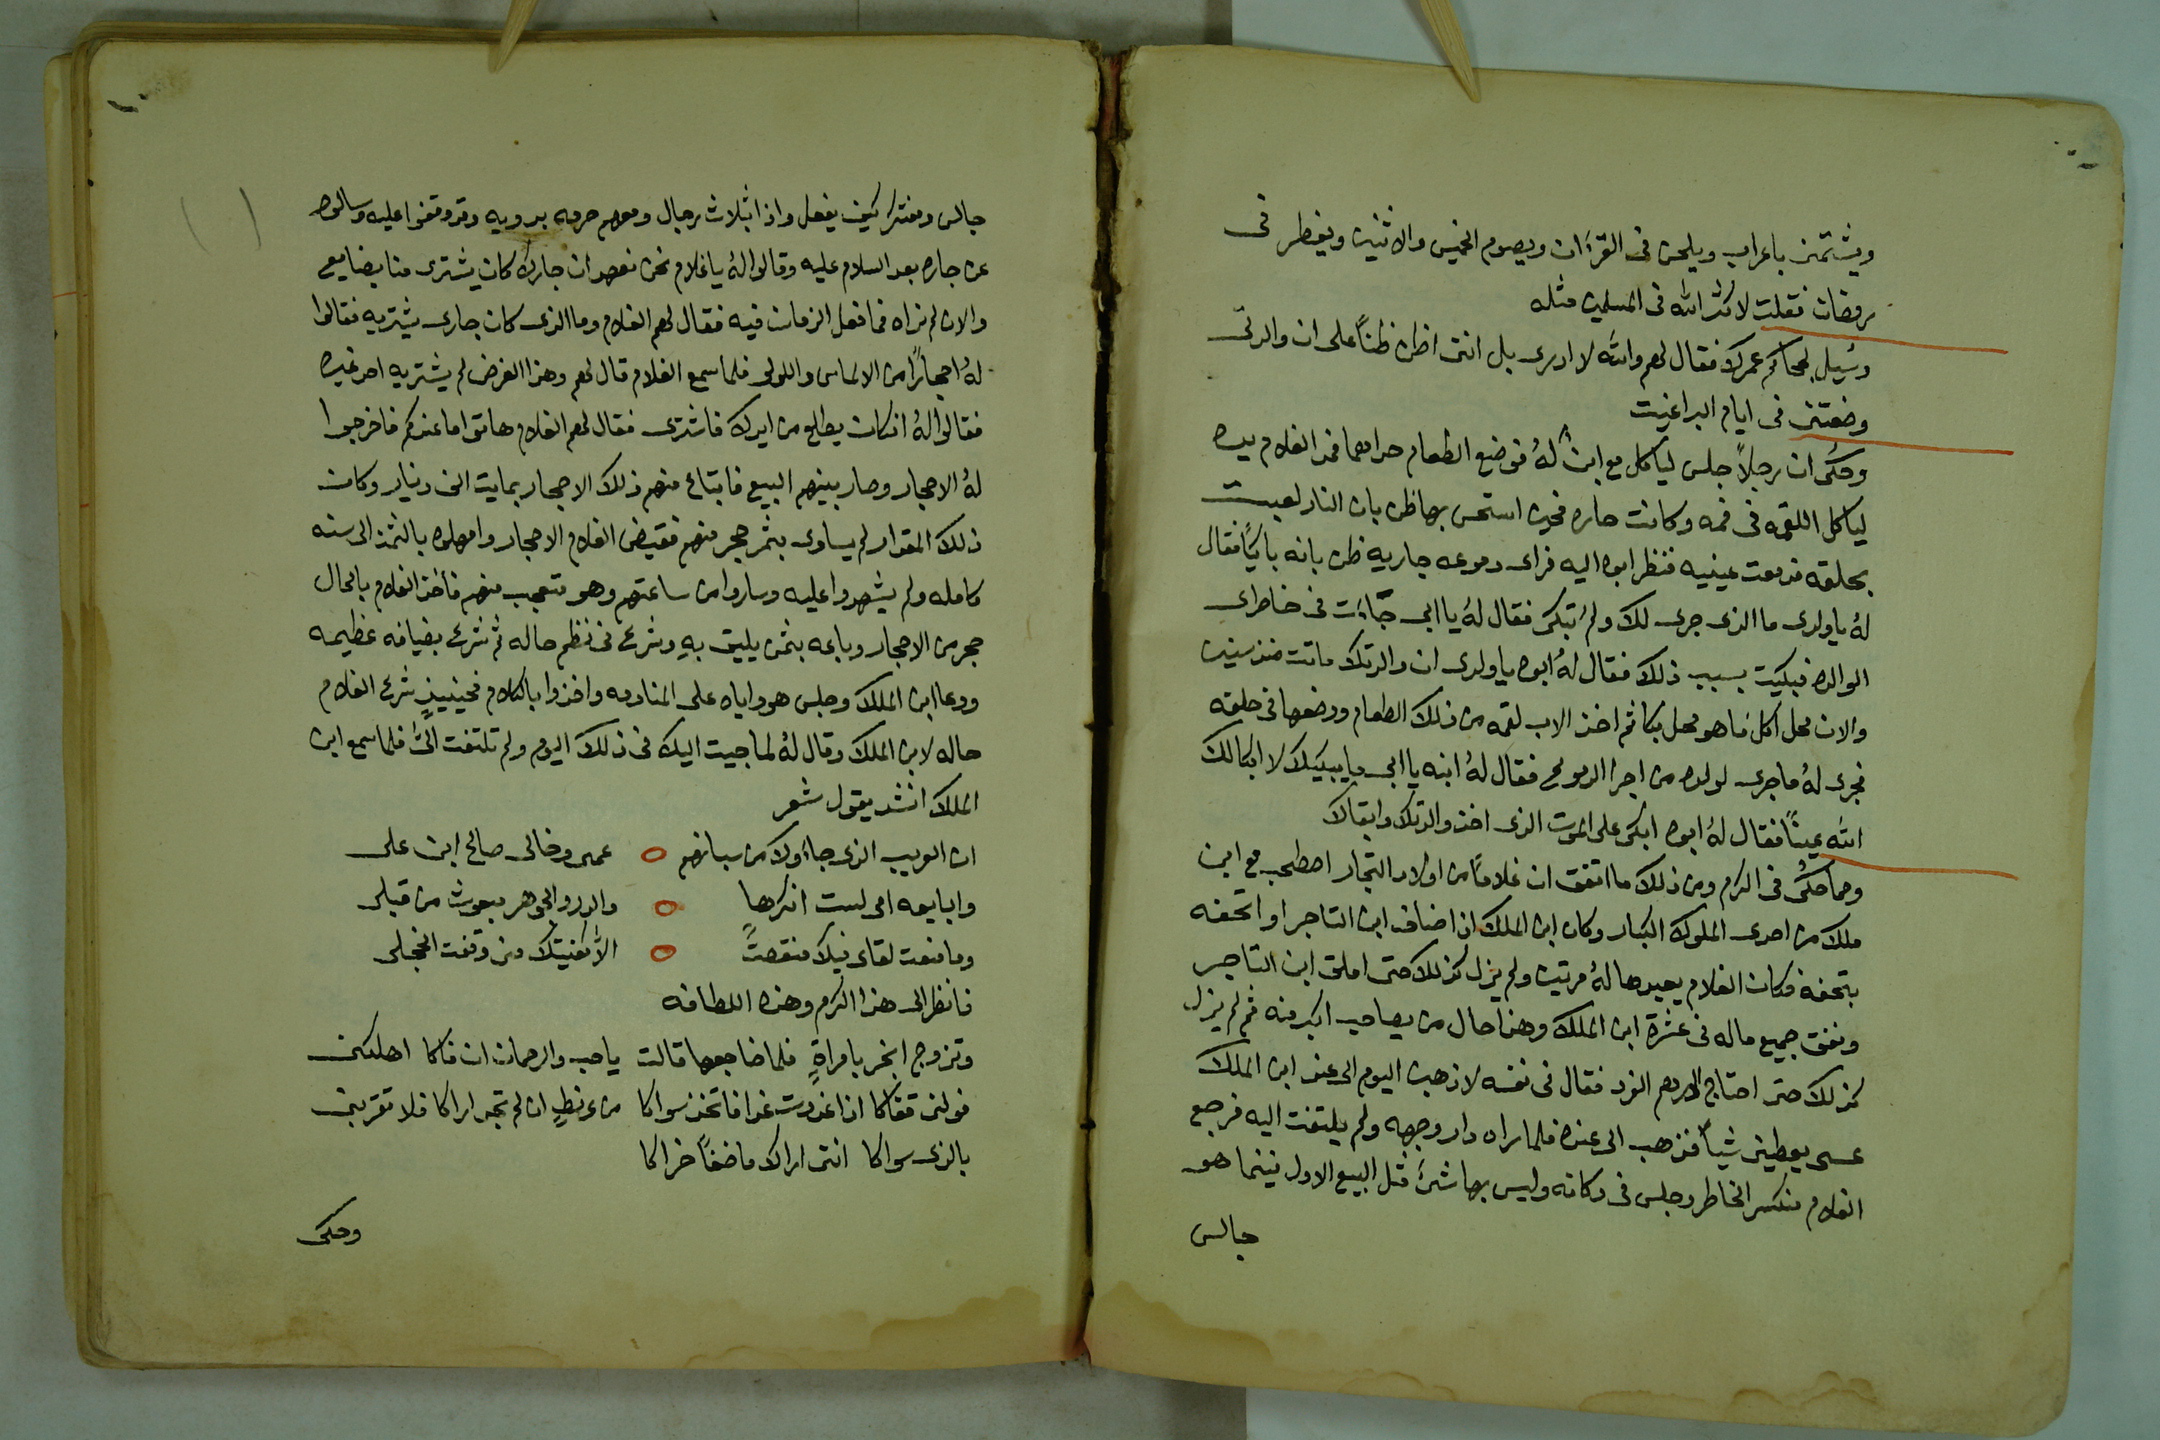 ويشتمني باعراب ويلحن فى القرءان ويصوم الخميس والاثنين ويفطر فى
رمضان فقلت لا كثر الله فى المسلمين مثله
وسُيل لجحا كم عمرك فقال لهم والله لا ادرى بل اننى اظن ظناً على ان والدتى
وضعتنى فى ايام البراغيت
وحكى ان رجلاً جلس لياكل مع ابنٌ لهُ فوضع الطعام حدامهما فمد الغلام يده
لياكل اللقمه فى فمه وكانت حاره فحين استحس بها ظن بان النار لعبت
بحلقه فدمعت عينيه فنظر ابوه اليه فراى دموعه جاريه ظن بانه باكياً فقال
لهُ يا ولدى ما الذى جرى لك ولمُ تبكى فقال لهُ يا ابى جآءت فى خاطرى
الوالده فبكيت بسبب ذلك فقال لهُ ابوه يا ولدى ان والدتك ماتت منذ سنين
والان محل اكل ما هو محل بكا ثم اخذ الاب لقمه من ذلك الطعام ووضعها فى حلقه
فجرى لهُ ما جرى لولده من اجرا الدموع فقال لهُ ابنه يا ابى ما يبكيك لا ابكا لك
الله عيناً فقال لهُ ابوه ابكى على الموت الذى اخذ والدتك وابقاك
ومما حكُى فى الكرم ومن ذلك ما اتفق ان غلاماً من اولاد التجار اصطحب مع ابن
ملك من احدى الملوك الكبار وكان ابن الملك اذا ضاف ابن التاجر او اتحفه
بتحفه فكان الغلام يعيدها لهُ مرتين ولم يزل كذلك حتى املق ابن التاجر
ونفق جميع ماله فى عشرة ابن الملك وهذا حال من يصاحب اكبر منه ثم لم يزل
كذلك حتى احتاج الدرهم الفرد فقال فى نفسه لاذهبن اليوم الى عند ابن الملك
عسى يعطينى شياً فذهب الى عنده فلما راه دار وجهه ولم يلتفت اليه فرجع
الغلام منكسر الخاطر وجلس فى دكانه وليس بها شئ مثل البيع الاول فبينما هو
جالس
جالس ومفتكر كيف يفعل واذا بثلاث رجال ومعهم حرمه بدويه وقد وقفوا عليه وسالوه
عن جاره بعد السلام عليه وقالوا لهُ يا غلام نحن نعهد ان جارك كان يشترى منا بضايع
والان لم نراه فما فعل الزمان فيه فقال لهم الغلام وما الذى كان جارى يشتريه فقالوا
لهُ احجاراً من الالماس واللولى فلما سمع الغلام قال لهم وهذا الغرض لم يشتريه احد غيره
فقالوا لهُ ان كان يطلع من ايدك فاشترى فقال لهم الغلام هاتوا ما عندكم فاخرجوا
لهُ الاحجار وصار بينهم البيع فابتاع منهم ذلك الاحجار بمايت الف دينار وكان
ذلك المقدار لم يساوى بثمن حجر منهم فقبض الغلام الاحجار وامهلوه بالثمن الى سنه
كامله ولم يشهدوا عليه وساروا من ساعتهم وهو متعجب منهم فاخذ الغلام بالحال
حجر من الاحجار وباعه بثمن يليق بهِ وشرع فى نظم حاله ثم شرع بضيافه عظيمه
ودعا ابن الملك وجلس هو واياه على المنادمه واخذوا بالكلام فحينيذٍ شرع الغلام
حاله لابن الملك وقال لهُ لما جيت اليك فى ذلك اليوم ولم تلتفت الىَّ فلما سمع ابن
الملك انشد يقول شعر
ان العريب الذى جاؤولا من سبابهم ○ عمى وخالى صالح ابن على
وابايعه امى لست انكرها ○ والدر والجوهر مبعوث من قبلى
وما منعت لقاى فيك منقصتً ○ الا كفيتك من وقفت الخجلى
فانظر الى هذا الكرم وهذه اللطافه
وتزوج ابخر بامراةٍ فلما ضاجعها قالت يا حب والرحمان ان فاكا اهلكنى
فولنى قفاكا اذا غدوت غدا فاتخذ سواكا من عرفطٍ ان لم تجد اراكا فلا تقربنى
بالذى سواكا اننى اراك ماضغاً خراكا
وحكى